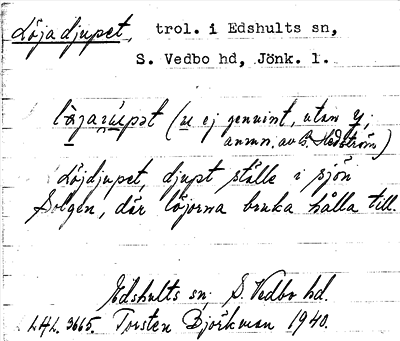 Löjadjupet, trol. i Edshults sn,
S. Vedbo hd, Jönk. l.
(u ej genuint, utan y,
anmn. av B. Hedström)
Löjdjupet, djupt ställe i sjön
Solgen, där löjorna bruka hålla till.
Edshults sn, S. Vedbo hd.
LHL. 3665. Torsten Björkman 1940.